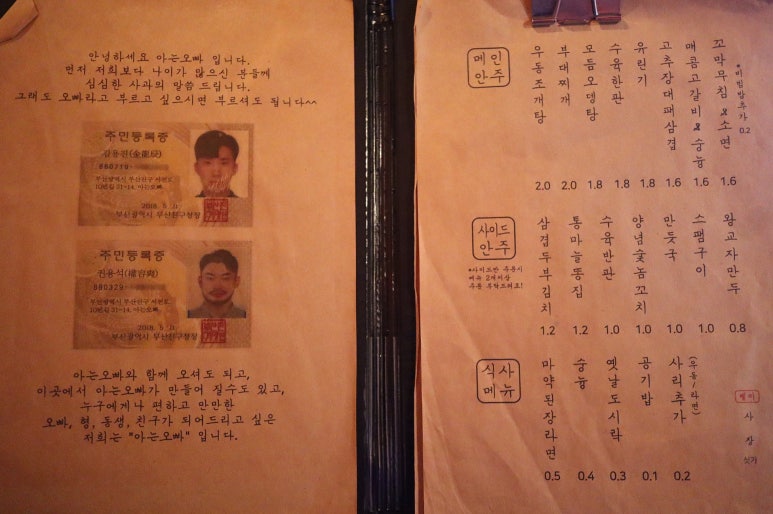 안녕하세요 아는오빠 입니다.
먼저 저희보다 나이가 많으신 분들께
심심한 사과의 말씀 드립니다.
그래도 오빠라고 부르고 싶으시면 부르셔도 됩니다~^
주민등록증
주민등록증
2018. 5. 31
부산광역시 부산진구청장
2018. 5. 31
부산광역시 부산진구청장
아는오빠와 함께 오셔도 되고,
이곳에서 아는오빠가 만들어 질수도 있고,
누구에게나 편하고 만만한
오빠, 형, 동생, 친구가 되어드리고 싶은
저희는 "아는오빠" 입니다.
메인
안주
우동조개탕 2.0
부대찌개 2.0
모듬오뎅탕 1.8
수육한판 1.8
유린기 1.8
고추장대패삼겹 1.6
매콤고갈비&숭늉 1.6
꼬막무침&소면 1.6
*비빔밥추가 0.2
사이드
안주
*사이드만 주문시
메뉴 2개이상
주문 부탁드려요!
삼겹두부김치 1.2
통마늘똥집 1.2
수육반판 1.0
양념숯놈꼬치 1.0
만둣국 1.0
스팸구이 1.0
왕교자만두 0.8
식사
메뉴
마약된장라면 0.5
숭늉 0.4
옛날도시락 0.3
공기밥 0.1
사리추가 (우동/라면) 0.2
사장
싯가